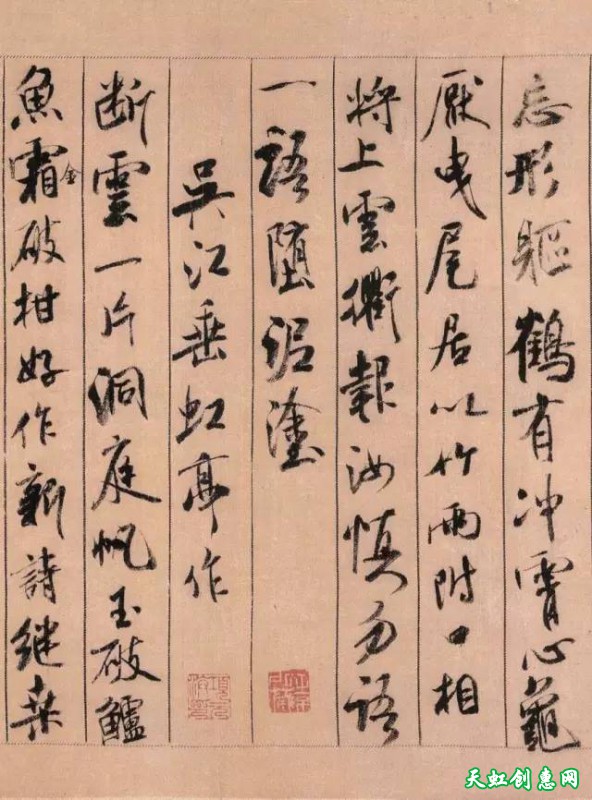 忘形軀鶴有冲霄心龜
厭曳尾居以竹兩附口相
將上雲衢報汝慎勿語
一語墮泥塗
吳江垂虹亭作
断雲一片洞庭帆玉破鱸
魚霜金破柑好作新詩継桑
天虹创惠网